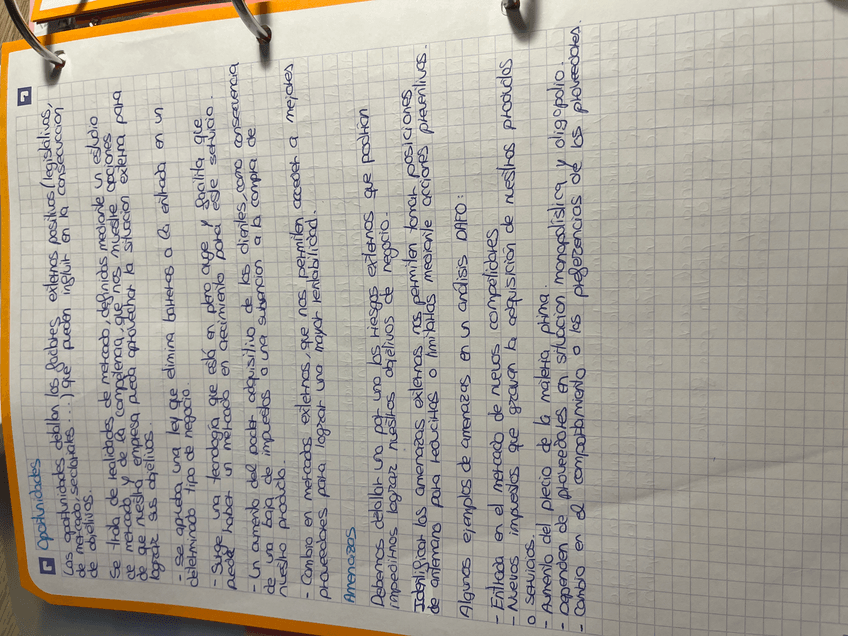 Oportunidades
Las oportunidades detallan los factores externos positivos (legislativos,
de mercado, sectoriales...) que pueden influir en la consecución
de objetivos.
Se trata de realidades de mercado, definidas mediante un estudio
de mercado y de la competencia, que nos muestre opciones
de que nuestra empresa pueda aprovechar la situación externa para
lograr sus objetivos.
- Se aprueba una ley que elimina barreras a la entrada en un
determinado tipo de negocio.
- Surge una tecnología que está en pleno auge y facilita que
puede haber un mercado en crecimiento para este servicio.
- Un aumento del poder adquisitivo de los clientes, como consecuencia
de una baja de impuestos o una subvención a la compra de
nuestro producto.
- Cambio en mercados externos, que nos permiten acceder a mejores
proveedores para lograr una mayor rentabilidad.
Amenazas
Debemos detallar uno por uno los riesgos externos que podrían
impedirnos lograr nuestros objetivos de negocio.
Identificar las amenazas externas nos permiten tomar posiciones
de antemano para reducirlas o limitarlas mediante acciones preventivas.
Algunos ejemplos de amenazas en un análisis DAFO:
- Entrada en el mercado de nuevos competidores
- Nuevos impuestos que gravan la adquisición de nuestros productos
o servicios.
- Aumento del precio de la materia prima.
- Dependen de proveedores en situación monopolística y oligopolio.
- Cambio en el comportamiento o las preferencias de los proveedores.